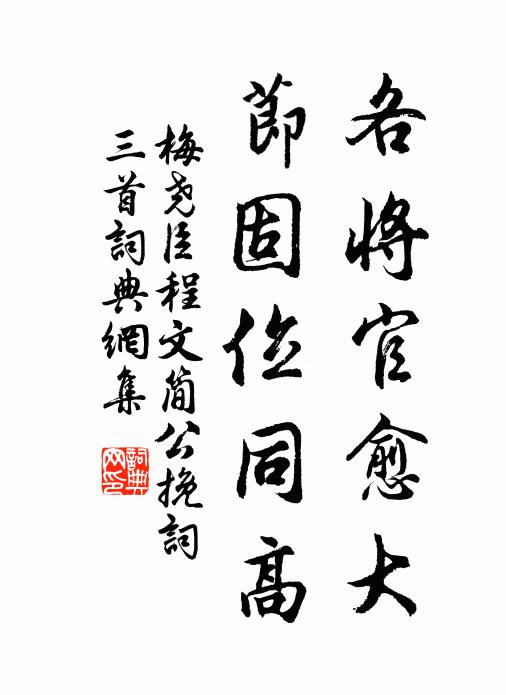 各將官愈大
節固位同高
梅堯臣程文簡公挽詞
三首詞典網集
詞典
网印